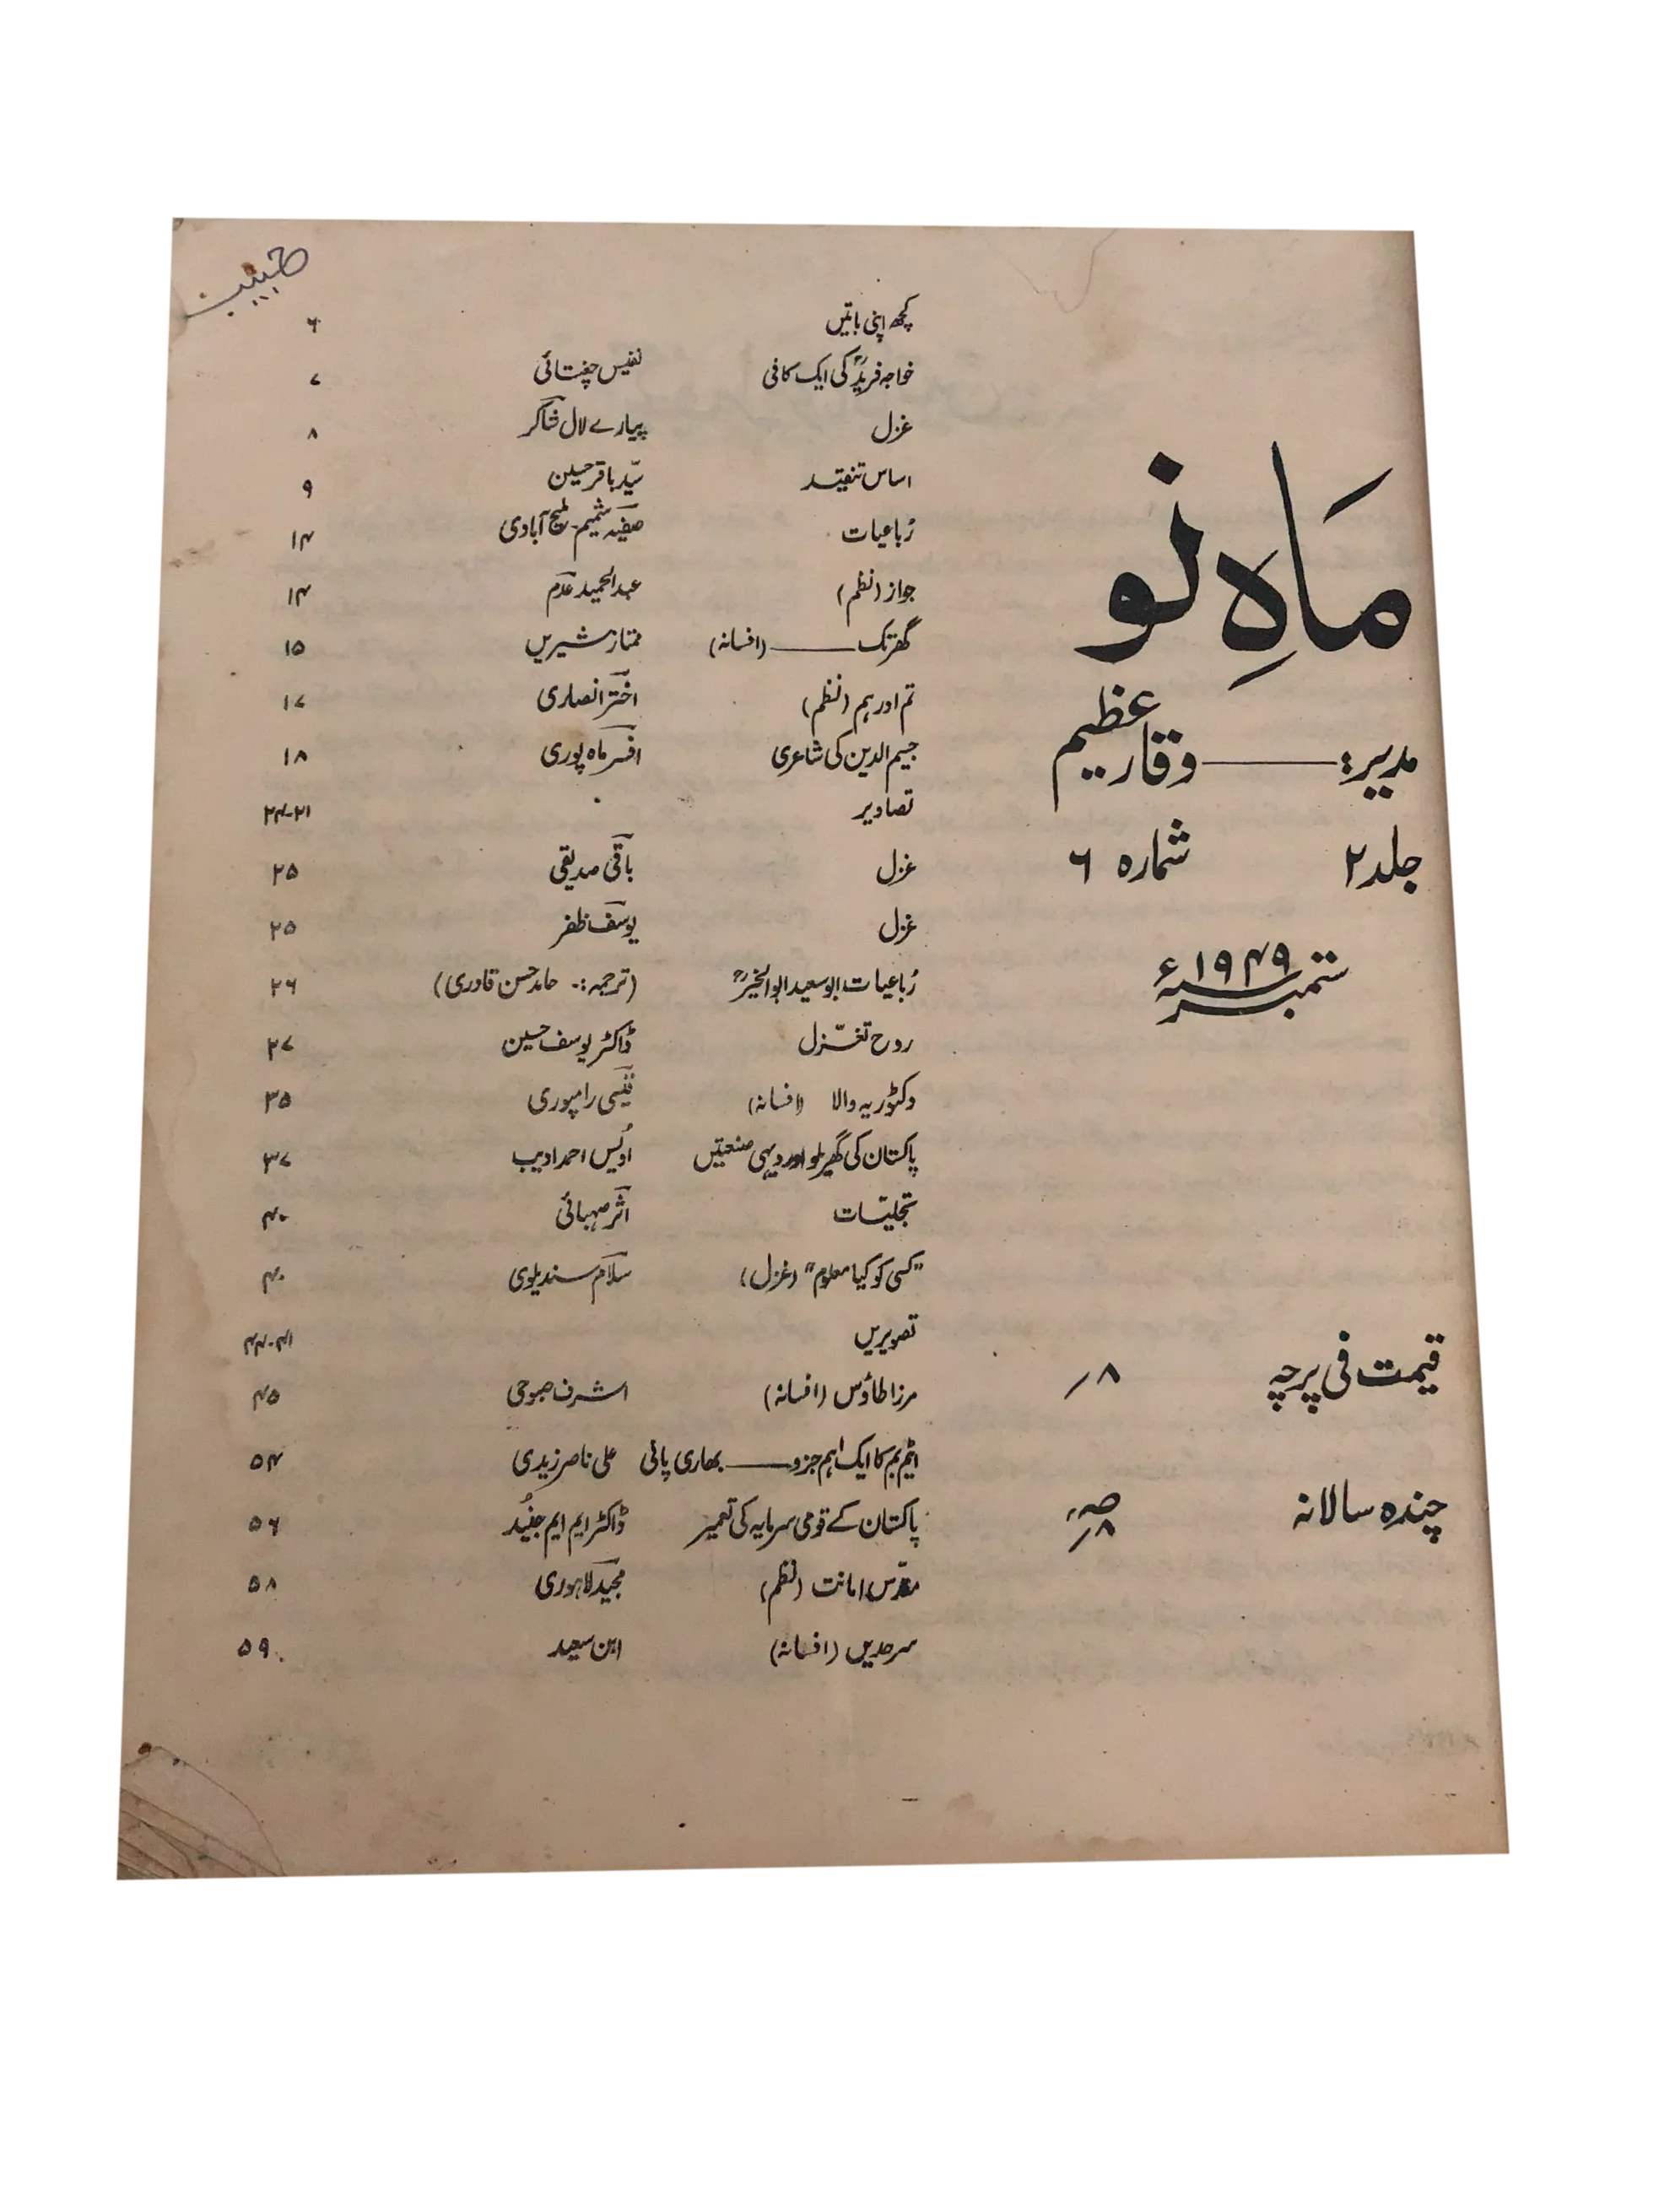 حبیب
ماہِ نو
مدیر: ——— وقار عظیم
جلد ۲ شمارہ ۶
ستمبر سنہ ۱۹۴۹ء
قیمت فی پرچہ ۸/
چندہ سالانہ
کچھ اپنی باتیں ۶
خواجہ فریدؒ کی ایک کافی نفیس چغتائی ۷
غزل پیارے لال شاکر ۸
اساس تنقید سیّد باقر حسین ۹
رُباعیات صفیہ شمیم ملیح آبادی ۱۴
جواز (نظم) عبدالحمید عدم ۱۴
گھر تک ——— (افسانہ) ممتاز شیریں ۱۵
تم اور ہم (نظم) اختر انصاری ۱۷
جسیم الدین کی شاعری افسر ماہ پوری ۱۸
تصاویر ۲۱-۲۴
غزل باقی صدیقی ۲۵
غزل یوسف ظفر ۲۵
رُباعیات ابوسعید ابوالخیرؒ (ترجمہ:- حامد حسن قادری) ۲۶
روح تغزّل ڈاکٹر یوسف حسین ۲۷
وکٹوریہ والا (افسانہ) قیسی رامپوری ۳۵
پاکستان کی گھریلو اور دیہی صنعتیں اویس احمد ادیب ۳۷
تجلیات اثر صہبائی ۴۰
"کسی کو کیا معلوم" (غزل) سلام سندیلوی ۴۰
تصویریں ۴۱-۴۴
مرزا طاؤس (افسانہ) اشرف صبوحی ۴۵
ایٹم بم کا ایک اہم جزو ——— بھاری پانی علی ناصر زیدی ۵۴
پاکستان کے قومی سرمایہ کی تعمیر ڈاکٹر ایم ایم جنید ۵۶
مقدّس امانت (نظم) مجید لاہوری ۵۸
سرحدیں (افسانہ) ابن سعید ۵۹